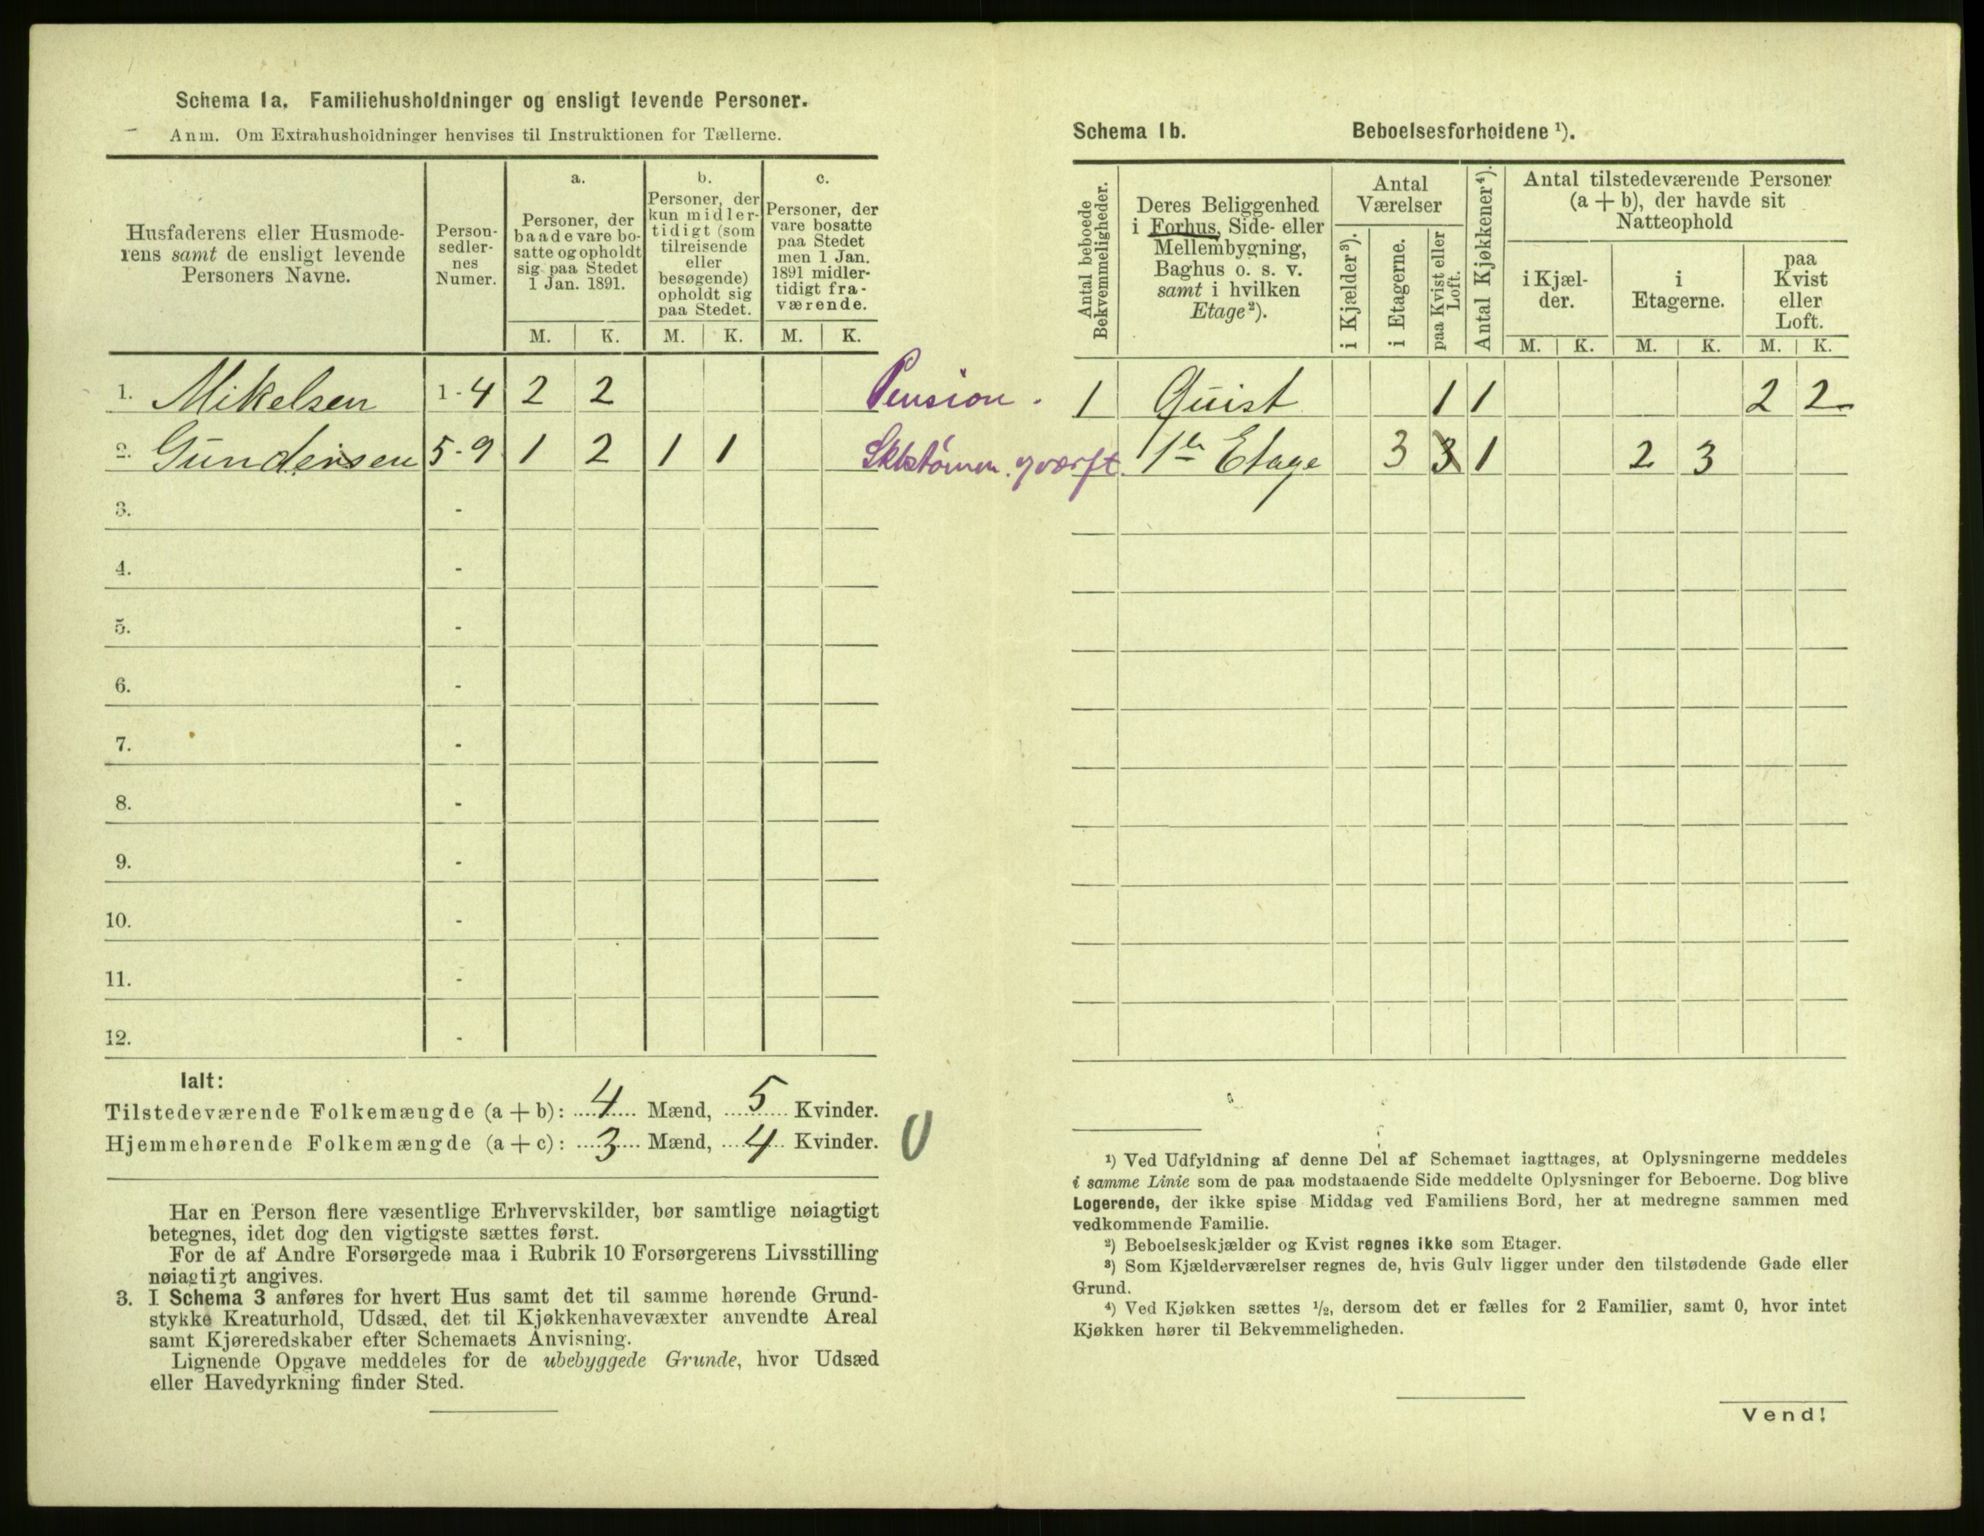 Schema 1a. Familiehusholdninger og ensligt levende Personer.
Anm. Om Extrahusholdninger henvises til Instruktionen for Tællerne.
Husfaderens eller Husmode-
rens samt de ensligt levende
Personers Navne.
Person-
sedler-
nes
Numer.
a.
Personer, der
baade vare bo-
satte og opholdt
sig paa Stedet
1 Jan. 1891.
b.
Personer, der
kun midler-
tidigt (som
tilreisende
eller
besøgende)
opholdt sig
paa Stedet.
c.
Personer, der
vare bosatte
paa Stedet
men 1 Jan.
1891 midler-
tidigt fra-
værende.
M. K. M. K. M. K.
1. Mikelsen 1-4 2 2 Pension.
2. Gundersen 5-9 1 2 1 1
3. -
4. -
5. -
6. -
7. -
8. -
9. -
10. -
11. -
12. -
Ialt:
Tilstedeværende Folkemængde (a + b): 4 Mænd, 5 Kvinder.
Hjemmehørende Folkemængde (a + c): 3 Mænd, 4 Kvinder.
Har en Person flere væsentlige Erhvervskilder, bør samtlige nøiagtigt
betegnes, idet dog den vigtigste sættes først.
For de af Andre Forsørgede maa i Rubrik 10 Forsørgerens Livsstilling
nøiagtigt angives.
3. I Schema 3 anføres for hvert Hus samt det til samme hørende Grund-
stykke Kreaturhold, Udsæd, det til Kjøkkenhavevæxter anvendte Areal
samt Kjøreredskaber efter Schemaets Anvisning.
Lignende Opgave meddeles for de ubebyggede Grunde, hvor Udsæd
eller Havedyrkning finder Sted.
Schema 1b. Beboelsesforholdene ¹).
Antal beboede
Bekvemmeligheder.
Deres Beliggenhed
i Forhus, Side- eller
Mellembygning,
Baghus o. s. v.
samt i hvilken
Etage²).
Antal
Værelser
i Kjælder³).
i Etagerne.
paa Kvist eller
Loft.
Antal Kjøkkener⁴).
Antal tilstedeværende Personer
(a + b), der havde sit
Natteophold
i Kjæl-
der.
i
Etagerne.
paa
Kvist
eller
Loft.
M. K. M. K. M. K.
1 Quist 1 1 2 2
1te Etage 3 3 1 2 3
¹) Ved Udfyldning af denne Del af Schemaet iagttages, at Oplysningerne meddeles
i samme Linie som de paa modstaaende Side meddelte Oplysninger for Beboerne. Dog blive
Logerende, der ikke spise Middag ved Familiens Bord, her at medregne sammen med
vedkommende Familie.
²) Beboelseskjælder og Kvist regnes ikke som Etager.
³) Som Kjælderværelser regnes de, hvis Gulv ligger under den tilstødende Gade eller
Grund.
⁴) Ved Kjøkken sættes ½, dersom det er fælles for 2 Familier, samt 0, hvor intet
Kjøkken hører til Bekvemmeligheden.
Vend!